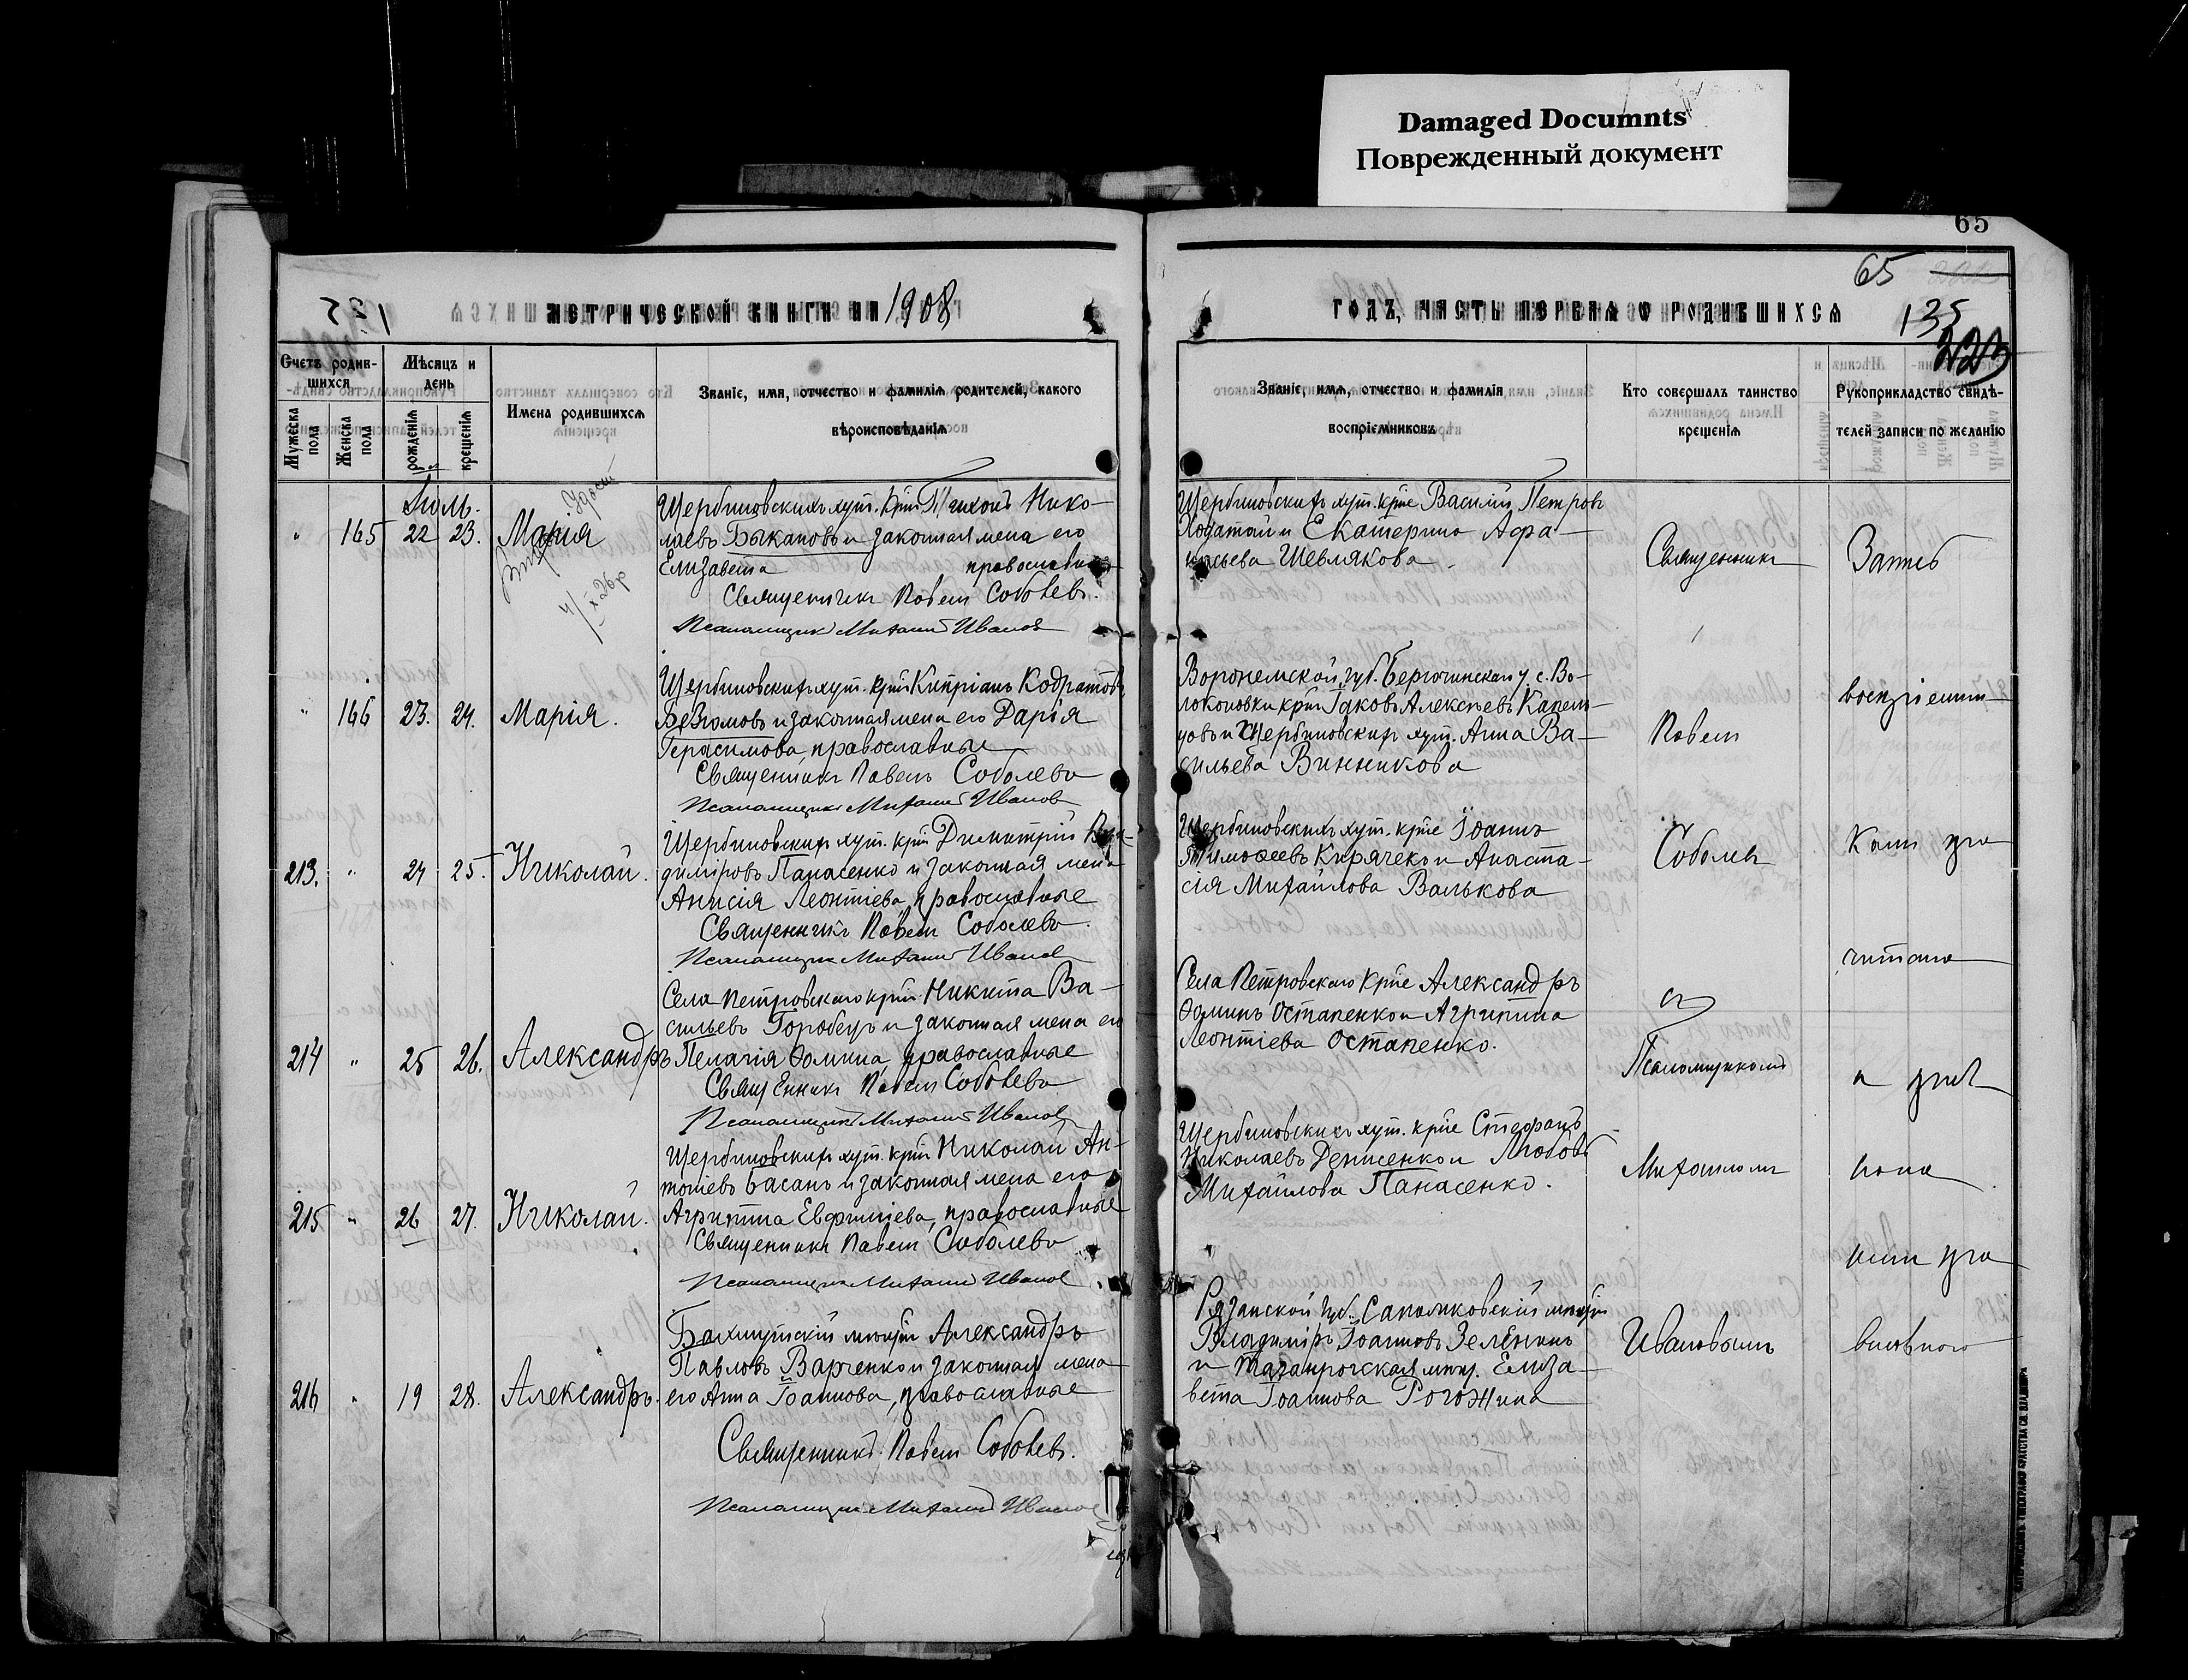 Damaged Documnts
Поврежденный документ
65
65
135
МЕТРИЧЕСКОЙ КНИГИ НА 1908
ГОДЪ, ЧАСТЬ ПЕРВАЯ О РОДИВШИХСЯ
Счетъ родив-
шихся
Мужеска
пола
Женска
пола
Мѣсяцъ и
день
рожденія
крещенія
Имена родившихся
Званіе, имя, отчество и фамилія родителей, какого
вѣроисповѣданія
Званіе, имя, отчество и фамилія
воспріемниковъ
Кто совершалъ таинство
крещенія
Рукоприкладство свидѣ-
телей записи по желанію
Іюль
" 165 22 23. Марія
Щербиновскихъ хут. крт Тихонъ Нико-
лаевъ Быкановъ и законная жена его
Елизавета православные
Священникъ Павелъ Соболевъ.
Псаломщикъ Михаилъ Ивановъ
Щербиновскихъ хут. крте Василій Петровъ
Ходатай и Екатерина Афа-
насьева Шевлякова.
" 166 23. 24. Марія.
Щербиновскихъ хут. крт Кипріанъ Кодратовъ
и законная жена его Дарія
Герасимова, православные
Священникъ Павелъ Соболевъ
Псаломщикъ Михаилъ Ивановъ
Воронежской губ. у. с. Во-
локоновки крт Іаковъ Алексѣевъ Капен-
цовъ и Щербиновскихъ хут. Анна Ва-
сильева Винникова
213. " 24 25. Николай.
Щербиновскихъ хут. крт Димитрій Вла-
диміровъ Панасенко и законная жена
Анисія Леонтіева, православные
Священникъ Павелъ Соболевъ.
Псаломщикъ Михаилъ Ивановъ
Щербиновскихъ хут. крте Іоаннъ
Тимоѳеевъ Кирячеко и Анаста-
сія Михайлова Валькова
214 " 25 26. Александръ
Села Петровскаго крт Никита Ва-
сильевъ Горобецъ и законная жена его
Пелагія Ѳомина, православные
Священникъ Павелъ Соболевъ
Псаломщикъ Михаилъ Ивановъ
Села Петровскаго крте Александръ
Ѳоминъ Остапенко и Агрипина
Леонтіева Остапенко.
215 " 26 27. Николай.
Щербиновскихъ хут. крт Николай Ан-
тоніевъ Басанъ и законная жена его
Агрипина Евфиміева, православные
Священникъ Павелъ Соболевъ
Псаломщикъ Михаилъ Ивановъ
Щербиновскихъ хут. крте Стефанъ
Николаевъ Денисенко и Любовь
Михайлова Панасенко.
216 " 19 28. Александръ.
Бахмутскій мещ. Александръ
Павловъ Варченко и законная жена
его Анна Іоаннова, православные
Священникъ Павелъ Соболевъ.
Псаломщикъ Михаилъ Ивановъ
Рязанской губ. мещ.
Владиміръ Іоанновъ Зелёнинъ
и Таганрогская мещ. Елиза-
вета Іоаннова Рогожина
Священникъ
Павелъ
Соболевъ
съ
Псаломщикомъ
Михаиломъ
Ивановымъ